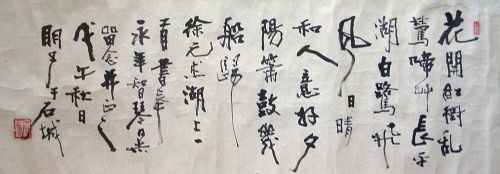 花開紅樹亂
鶯啼艸長平
湖白鷺飛
風日晴
和人意好夕
陽簫鼓幾
船歸
徐元杰湖上一
首書奉
永華智琴
留念并正之
戊午秋日
于石城